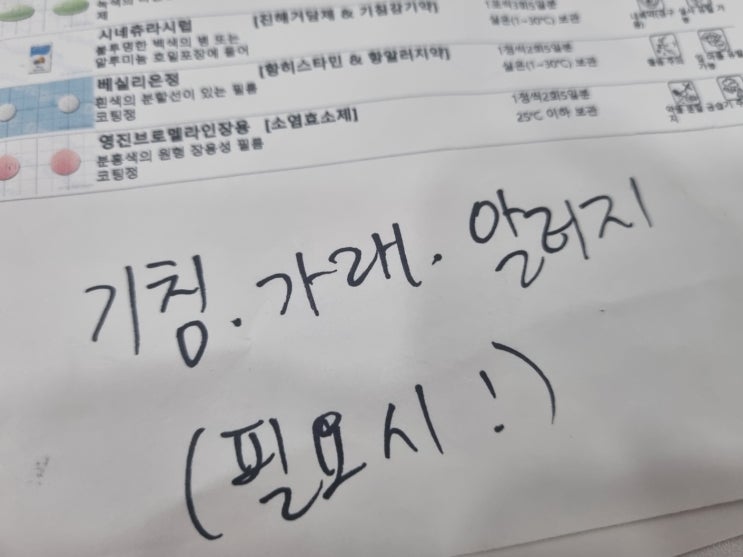 제
시네츄라시럽 [진해거담제 & 기침감기약]
불투명한 백색의 병 또는
알루미늄 호일포장에 들어
1포씩3회5일분
실온(1~30℃) 보관
베실리온정 [항히스타민 & 항알러지약]
흰색의 분할선이 있는 필름
코팅정
1정씩2회5일분
실온(1~30℃) 보관
영진브로멜라인장용 [소염효소제]
분홍색의 원형 장용성 필름
코팅정
1정씩2회5일분
25℃ 이하 보관
기침. 가래. 알러지
(필요시!)